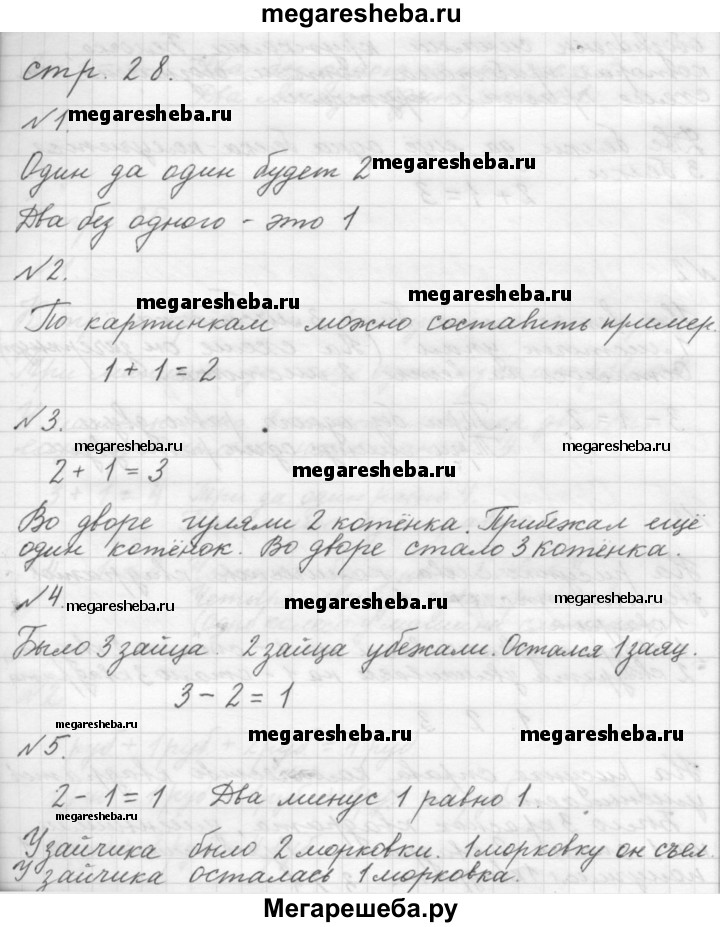 megaresheba.ru
стр. 28.
№1. megaresheba.ru
Один да один будет 2 megaresheba.ru
Два без одного - это 1
№2.
megaresheba.ru megaresheba.ru
По картинкам можно составить пример.
1 + 1 = 2
№3.
megaresheba.ru megaresheba.ru
2 + 1 = 3 megaresheba.ru
Во дворе гуляли 2 котёнка. Прибежал ещё
один котёнок. Во дворе стало 3 котёнка.
№4. megaresheba.ru megaresheba.ru megaresheba.ru
Было 3 зайца. 2 зайца убежали. Остался 1 заяц.
3 - 2 = 1
megaresheba.ru megaresheba.ru megaresheba.ru
№5.
2 - 1 = 1 Два минус 1 равно 1
megaresheba.ru
У зайчика было 2 морковки. 1 морковку он съел.
У зайчика осталась 1 морковка.
Мегарешеба.ру